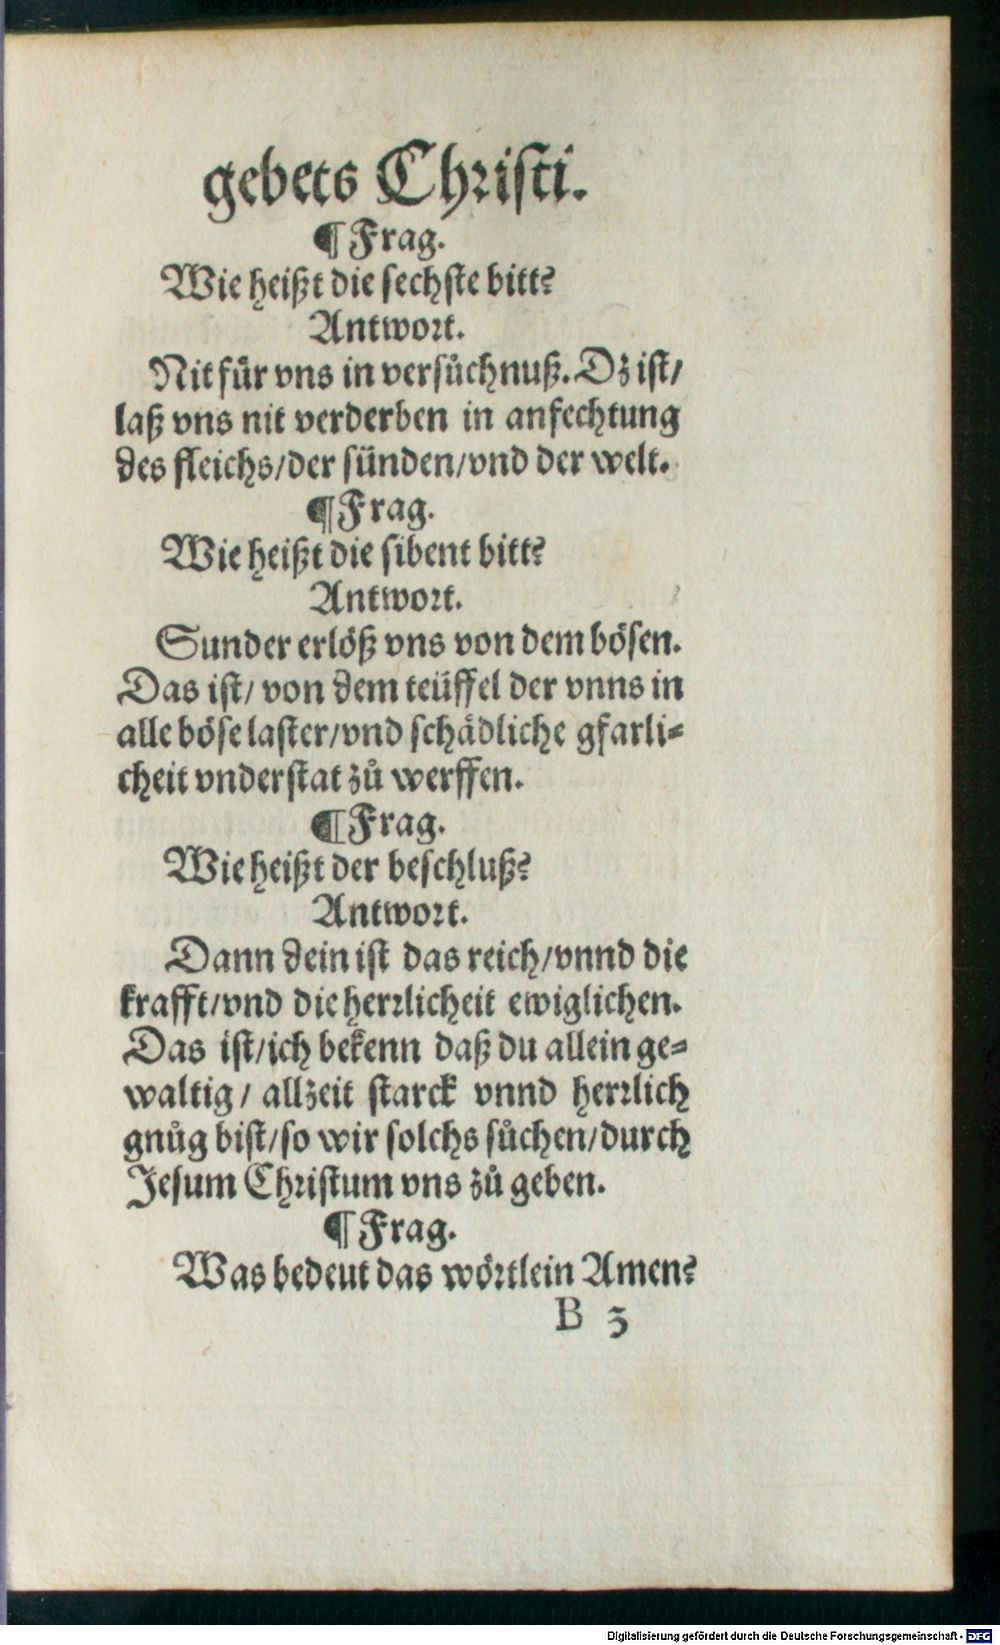 gebets Christi.
¶ Frag.
Wie heißt die sechste bitt?
Antwort.
Nit fuͤr vns in versuͦchnuß. Dz ist/
laß vns nit verderben in anfechtung
des fleichs/der sünden/vnd der welt.
¶ Frag.
Wie heißt die sibent bitt?
Antwort.
Sunder erloͤß vns von dem boͤsen.
Das ist/ von dem teüffel der vnns in
alle boͤse laster/vnd schaͤdliche gfarli⸗
cheit vnderstat zuͦ werffen.
¶ Frag.
Wie heißt der beschluß?
Antwort.
Dann dein ist das reich/vnnd die
krafft/vnd die herrlicheit ewiglichen.
Das ist/ich bekenn daß du allein ge⸗
waltig/ allzeit starck vnnd herrlich
gnuͦg bist/so wir solchs suͦchen/durch
Jesum Christum vns zuͦ geben.
¶ Frag.
Was bedeut das woͤrtlein Amen?
B 3
Digitalisierung gefördert durch die Deutsche Forschungsgemeinschaft - DFG